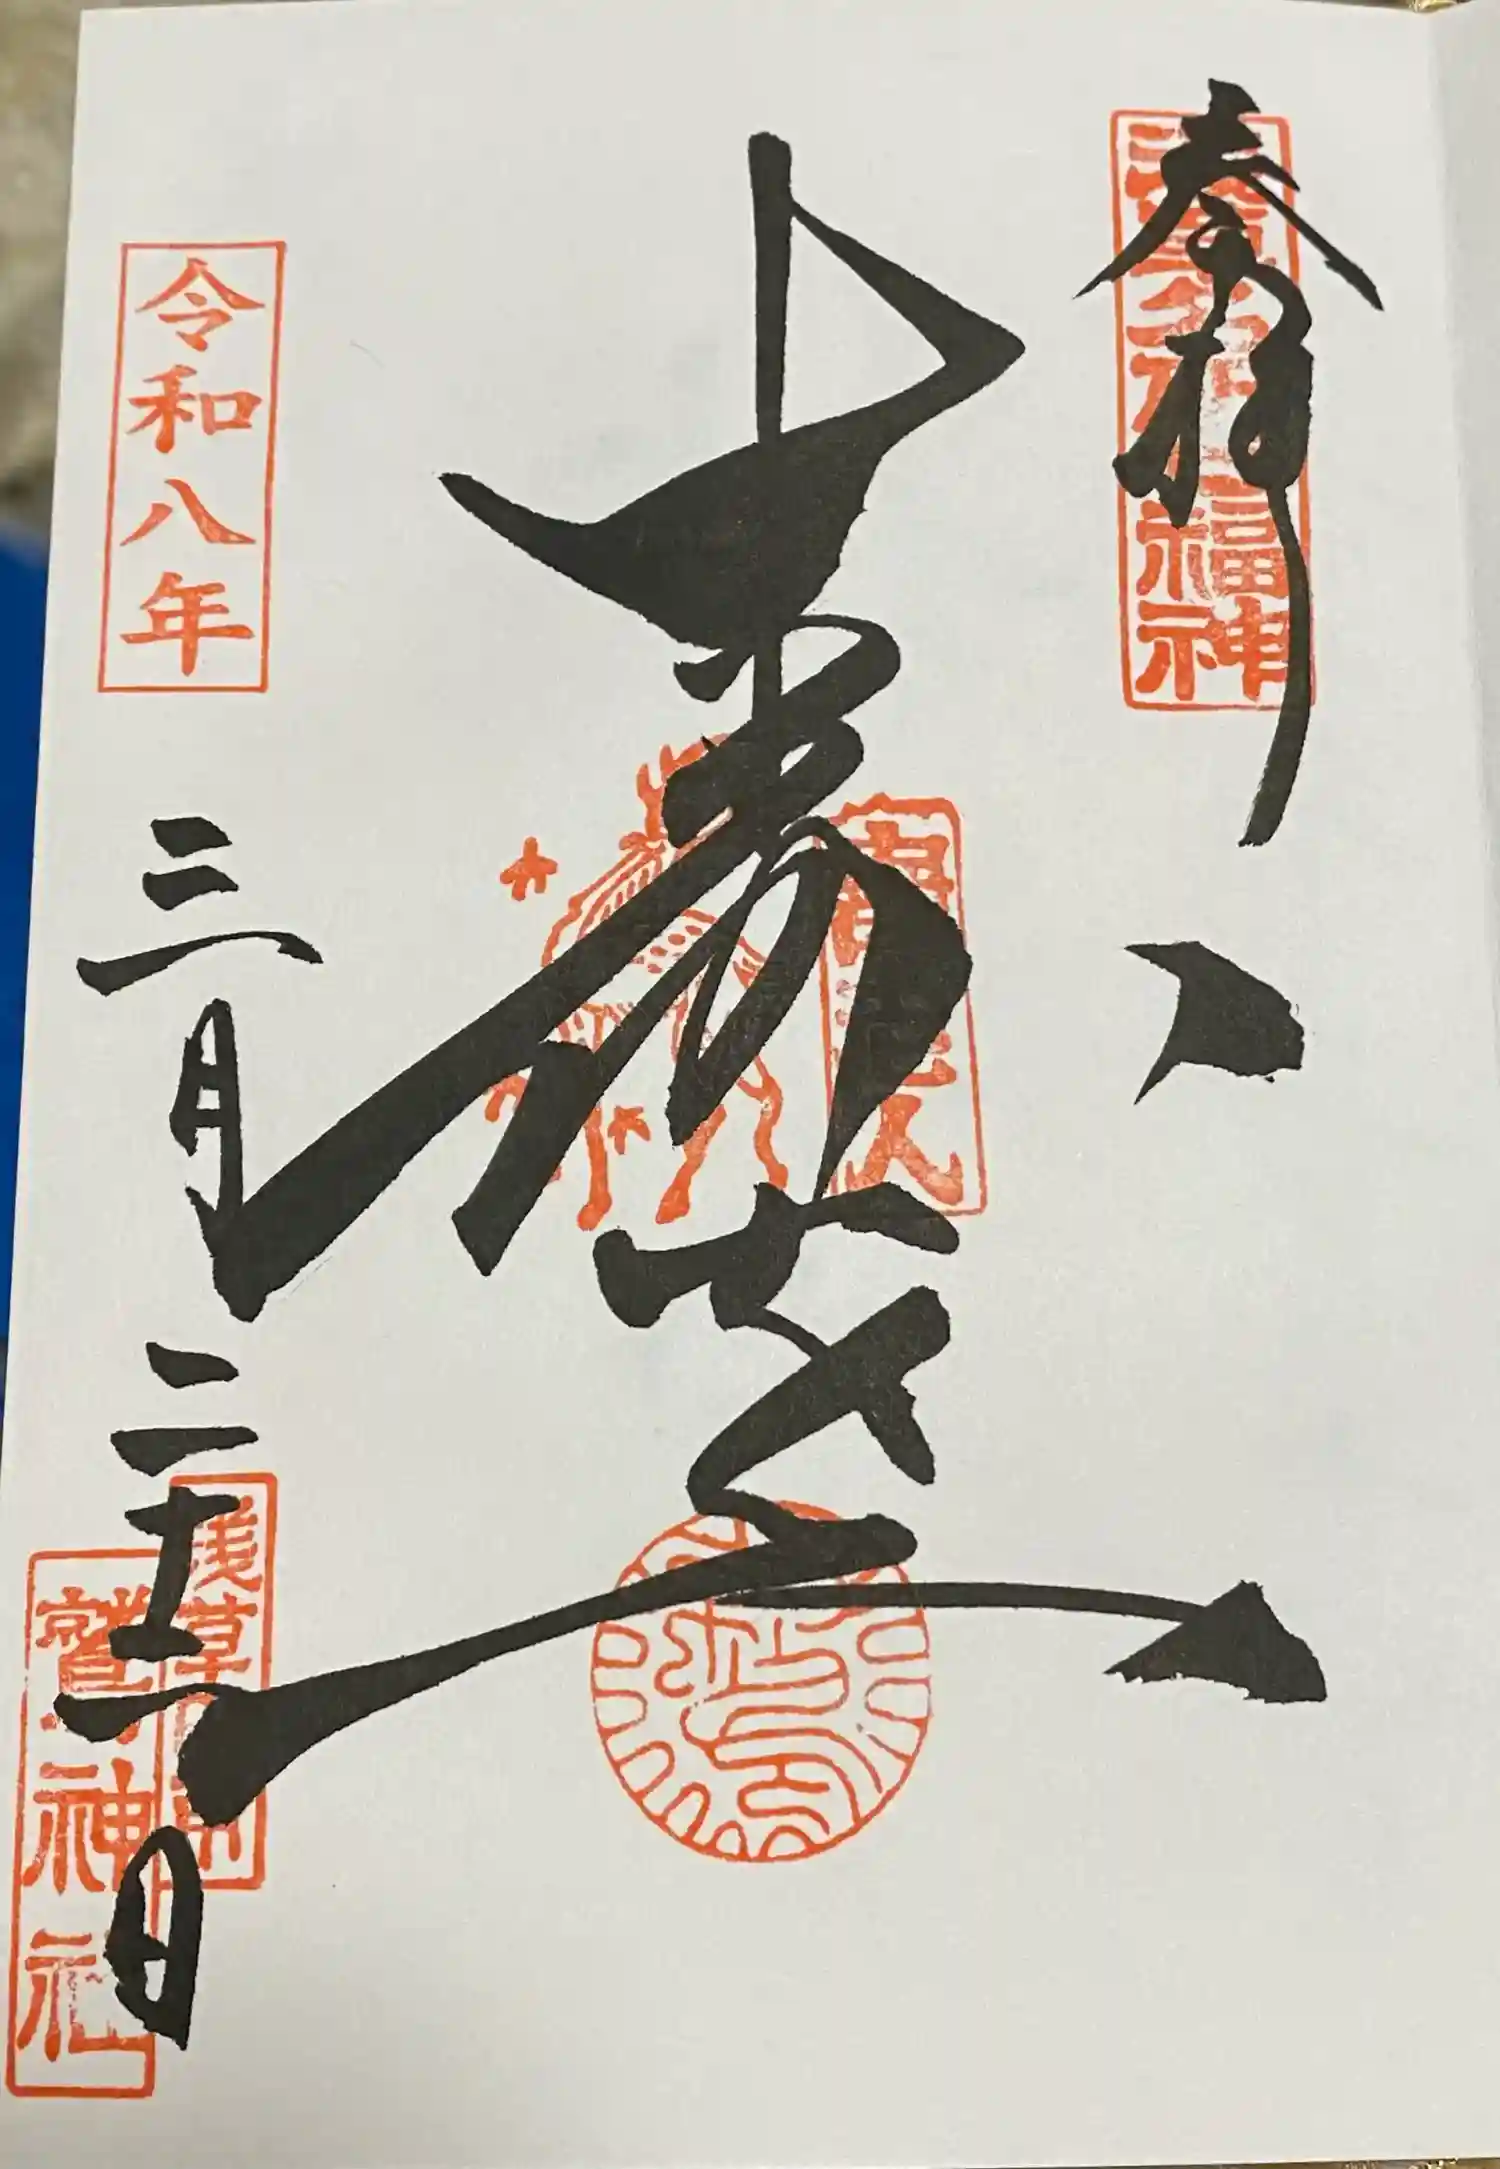 奉拝
浅草名所七福神
壽老人
令和八年
三月二十二日
浅草
鷲神社